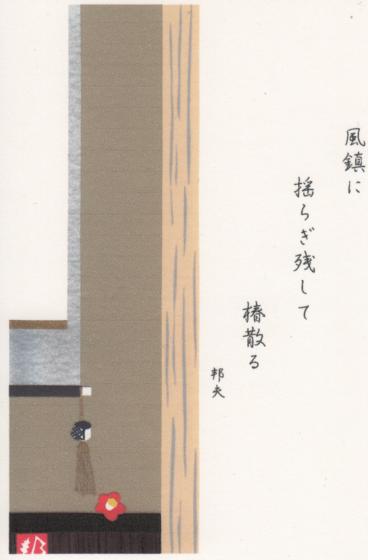 風鎮に
揺らぎ残して
椿散る
邦夫